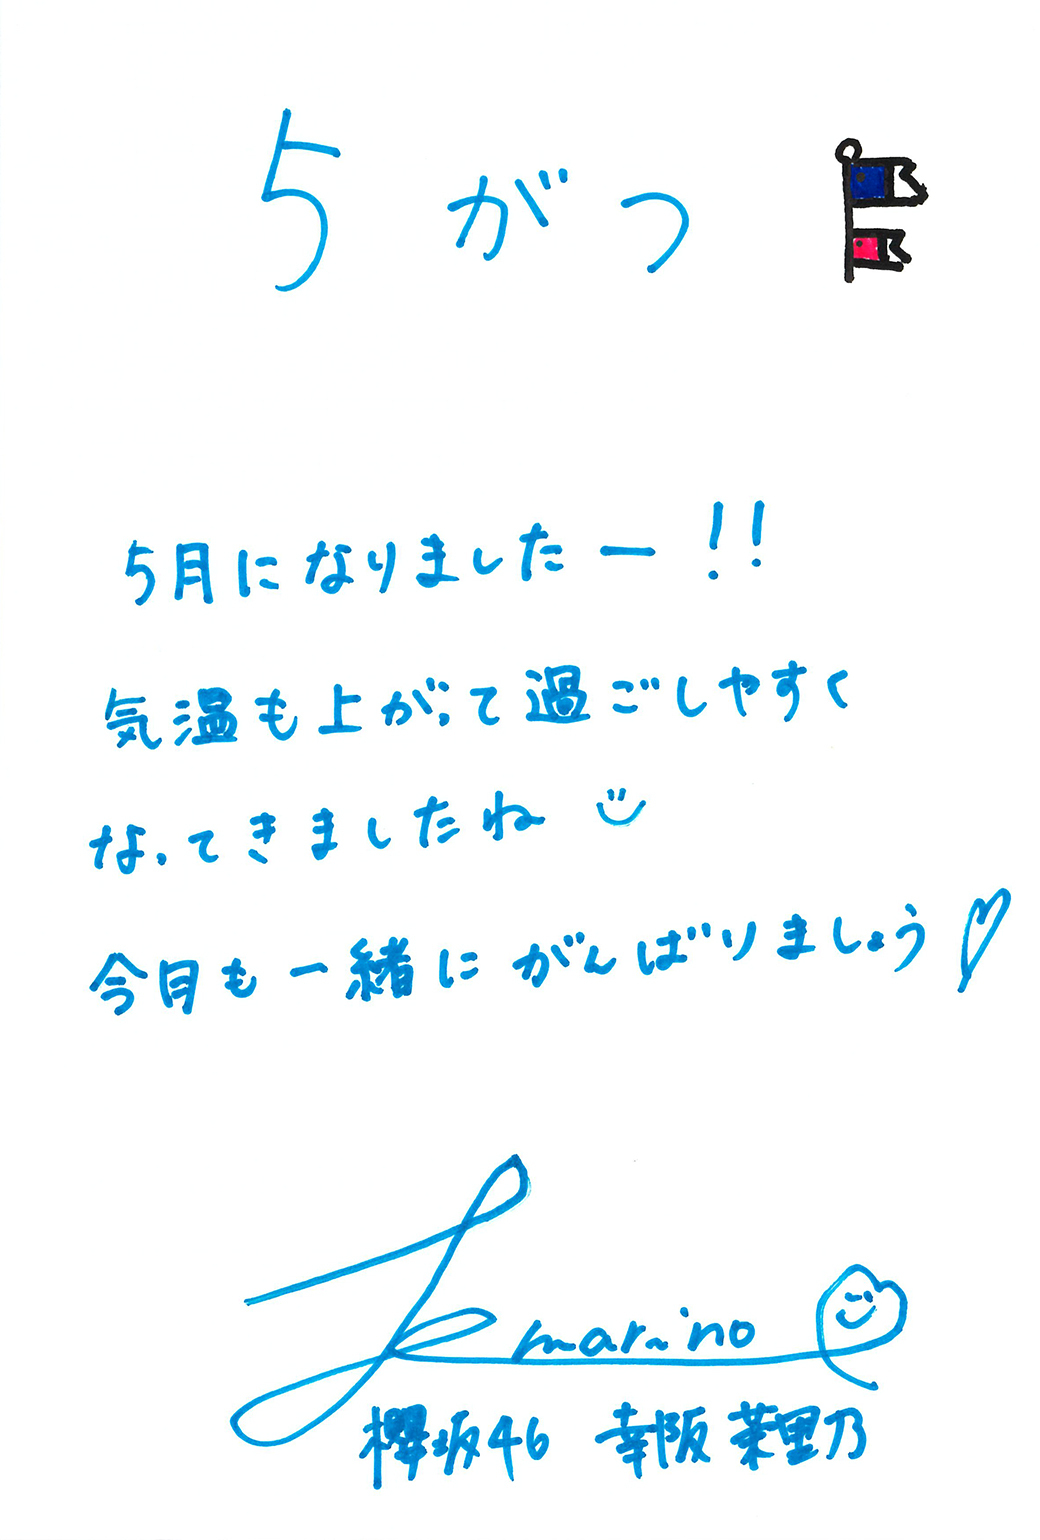 5がつ
5月になりましたー!!
気温も上がって過ごしやすく
なってきましたね
今月も一緒にがんばりましょう
marino
欅坂46 幸阪茉里乃